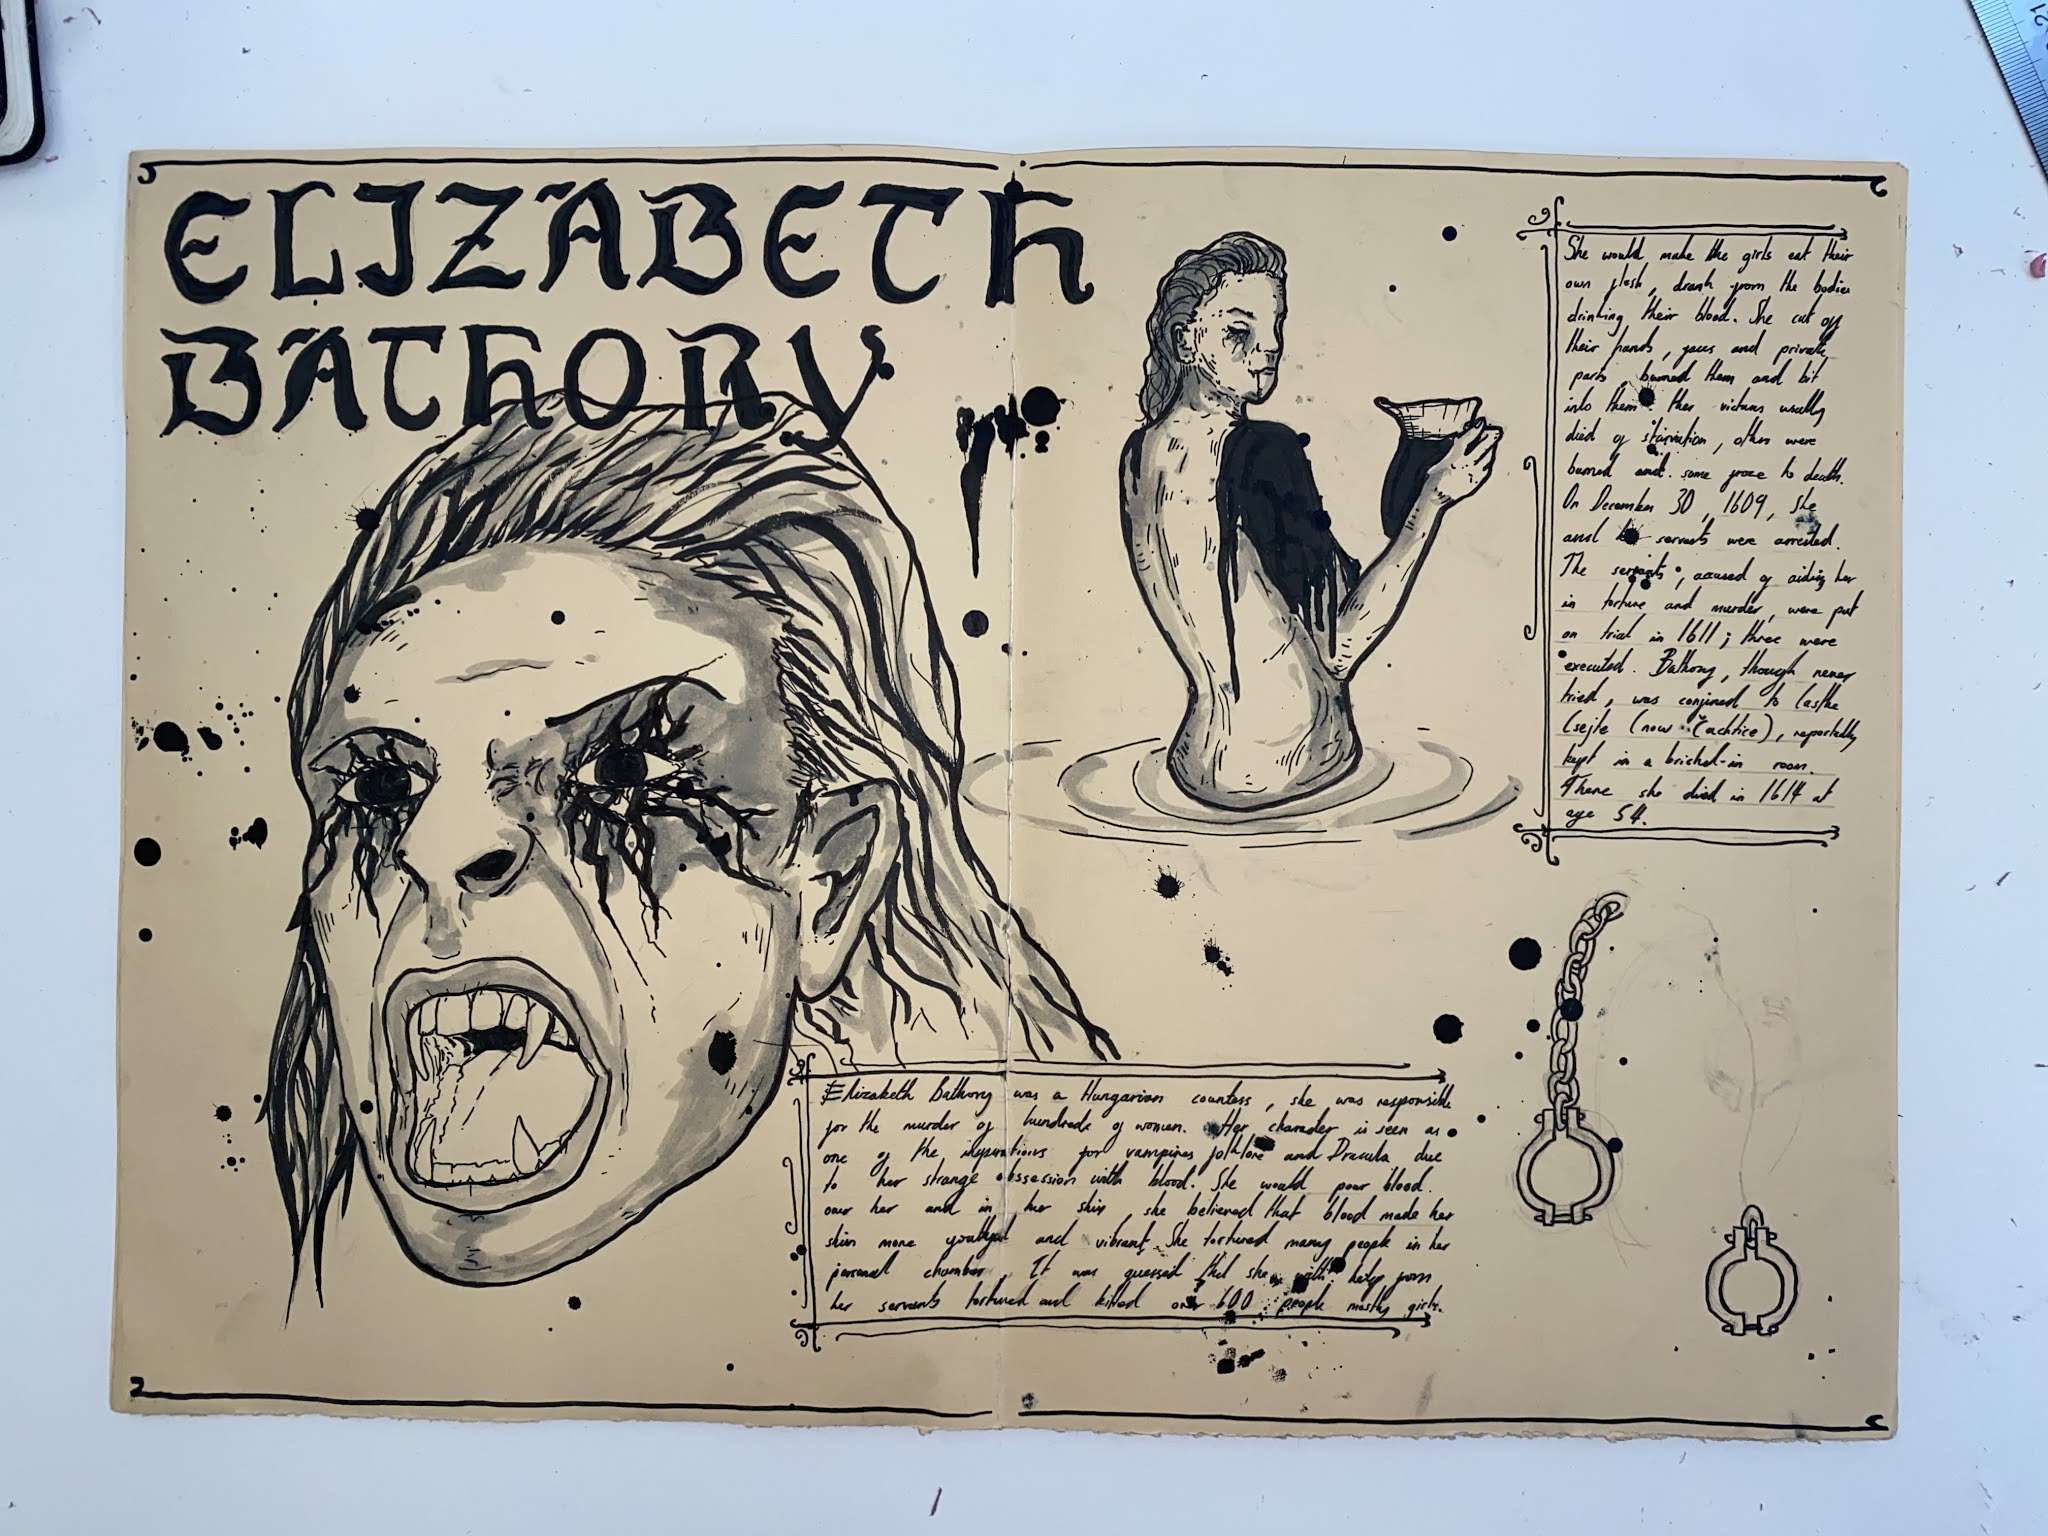 ELIZABETH
BATHORY
She would make the girls eat their
own flesh, drank from the bodies
drinking their blood. She cut off
their hands, jaws and private
parts, burned them and bit
into them. Her victims usually
died of starvation, others were
burned and some froze to death.
On December 30, 1609, She
and servants were arrested.
The servants, accused of aiding her
in torture and murder, were put
on trial in 1611; three were
executed. Bathory, though never
tried, was confined to Castle
Csejte (now Čachtice), reportedly
kept in a bricked-in room.
There she died in 1614 at
age 54.
Elizabeth Bathory was a Hungarian countess, she was responsible
for the murder of hundreds of women. Her character is seen as
one of the inspirations for vampires folklore and Dracula due
to her strange obsession with blood. She would pour blood
over her and in her skin, she believed that blood made her
skin more youthful and vibrant. She tortured many people in her
personal chamber. It was guessed that she with help from
her servants tortured and killed over 600 people mostly girls.
21